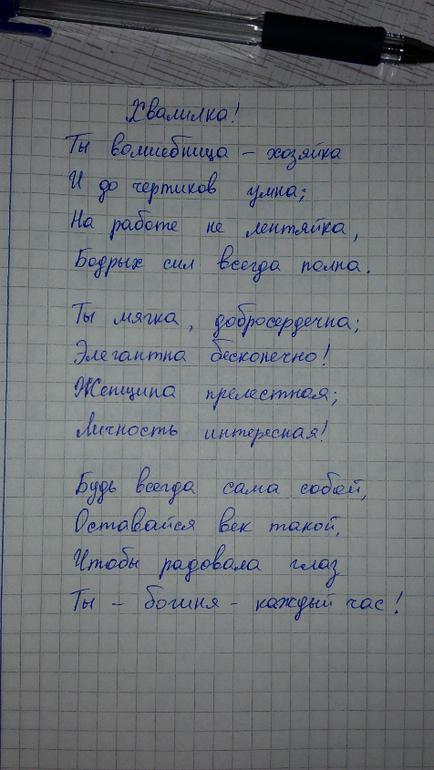 Хвалилка!
Ты волшебница - хозяйка
И до чертиков умна;
На работе не лентяйка,
Бодрых сил всегда полна.
Ты мягка, добросердечна;
Элегантна бесконечно!
Женщина прелестная;
Личность интересная!
Будь всегда сама собой,
Оставайся век такой,
Чтобы радовала глаз
Ты - богиня - каждый час!